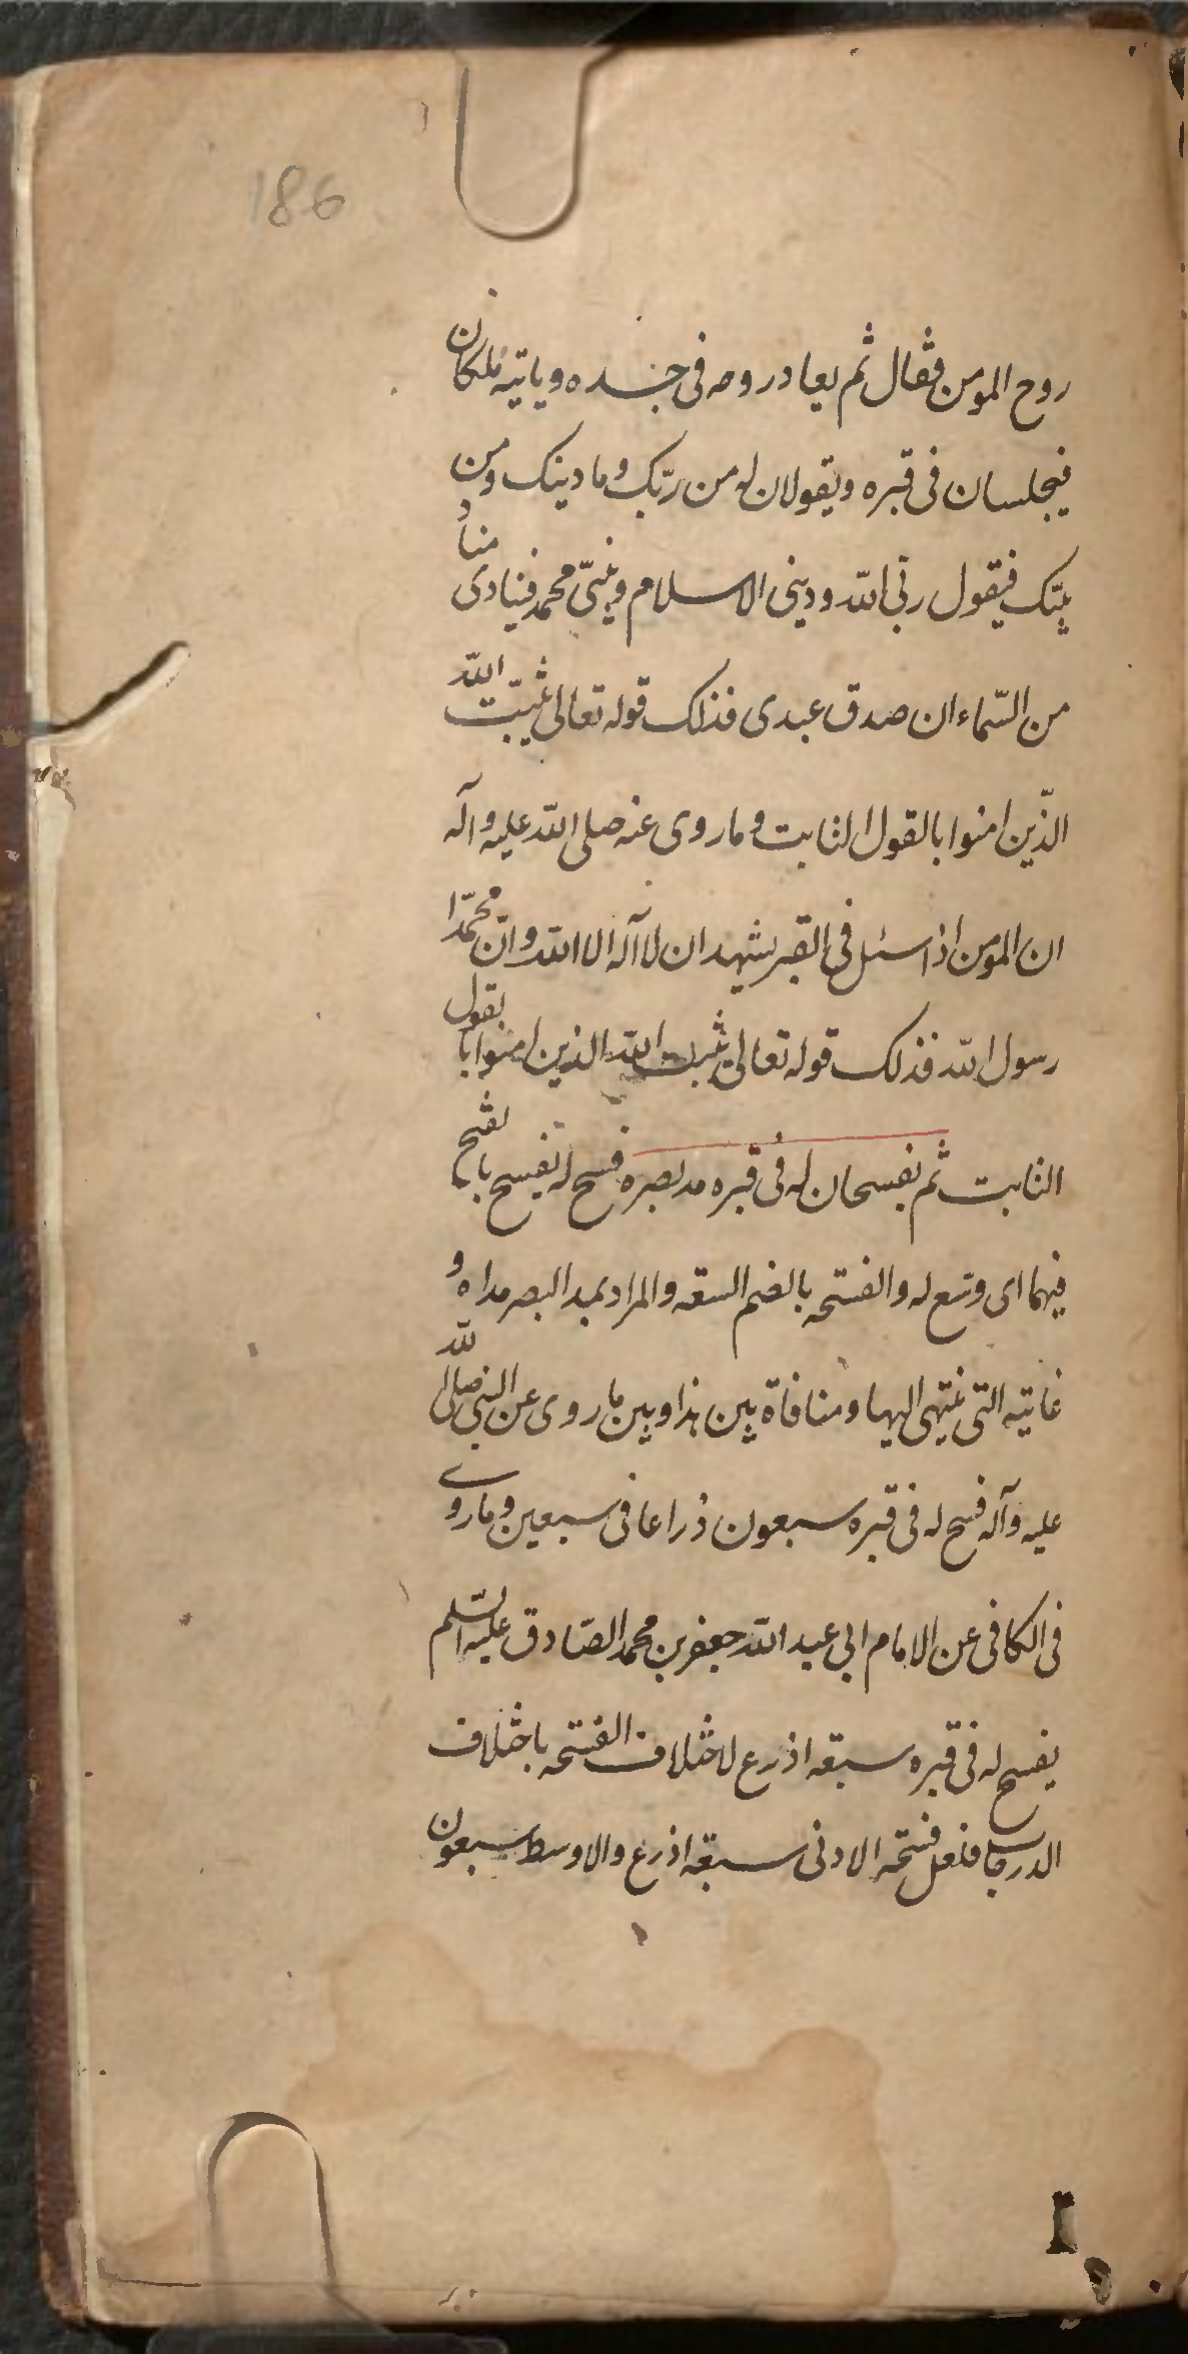 186
روح المومن فقال ثم يعاد روحه فى جسده وياتيه ملكان
فيجلسان فى قبره ويقولان له من ربّك وما دينك ومن
نبيّك فيقول ربى الله ودينى الاسلام ونبيّى محمد فينادى مناد
من السّماء ان صدق عبدى فذلك قوله تعالى يثبّت الله
الذّين امنوا بالقول الثابت وما روى عنه صلى الله عليه وآله
ان المومن اذا سئل فى القبر يشهد ان لا آله الا الله وانّ محمّدا
رسول الله فذلك قوله تعالى يثبت الله الذين امنوا بالقول
الثابت ثم يفسحان له فى قبره مد بصره فسح له يفسح بالفتح
فيهما اى وسّع له والفسحه بالضم السعه والمراد بمد البصر مداه و
غايته التى ينتهى اليها ومنافاة بين هذا وبين ما روى عن النبى صلى الله
عليه وآله فسح له فى قبره سبعون ذراعا فى سبعين وما روى
فى الكافى عن الامام ابى عبد الله جعفر بن محمد الصّادق عليه السّلم
يفسح له فى قبره سبعه اذرع لاختلاف الفسحه باختلاف
الدرجات فلعل فسحه الادنى سبعه اذرع والاوسط سبعون